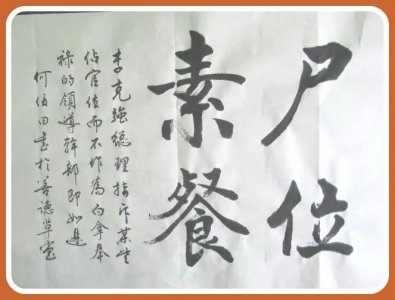 尸位
素餐
李克強總理指斥某些
佔官位而不作為白拿奉
祿的領導幹部即如是
何伍田書於善德草堂